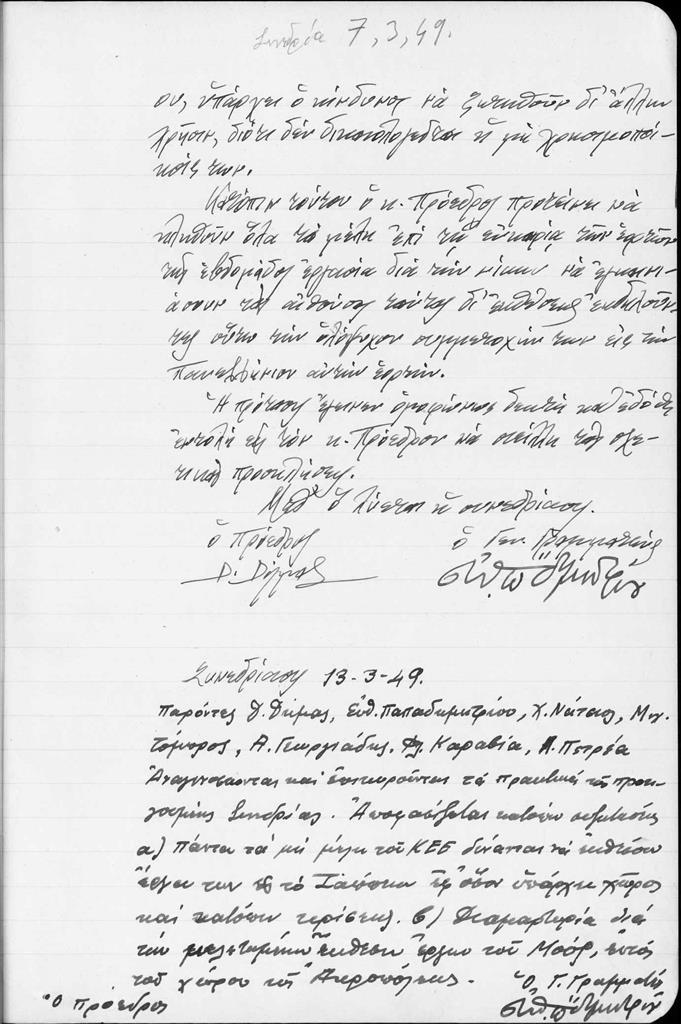 Συνεδρία 7,3,49.
ου, ὑπάρχει ὁ κίνδυνος νὰ ζητηθοῦν δι' ἄλλην
χρῆσιν, διότι δὲν δικαιολογεῖται ἡ μὴ χρησιμοποί-
ησίς των.
Κατόπιν τούτου ὁ κ. Πρόεδρος προτείνει νὰ
κληθοῦν ὅλα τὰ μέλη ἐπὶ τῇ εὐκαιρίᾳ τῶν ἑορτῶν
τῆς ἑβδομάδος ἐργασία διὰ τὴν νίκην νὰ ἐγκαινι-
άσουν τὰς αἰθούσας ταύτας δι' ἐκθέσεως ἐκδηλοῦν-
τες οὕτω τὴν ὁλόψυχον συμμετοχήν των εἰς τὴν
Πανελλήνιον αὐτὴν ἑορτήν.
Ἡ πρότασις ἔγεινεν ὁμοφώνως δεκτὴ καὶ ἐδόθη
ἐντολὴ εἰς τὸν κ. Πρόεδρον νὰ στείλῃ τὰς σχε-
τικὰς προσκλήσεις.
Μεθ' ὃ λύεται ἡ συνεδρίασις.
ὁ Πρόεδρος ὁ Γεν. Γραμματεύς
Συνεδρίασις 13-3-49.
Παρόντες Δ. Δήμας, Εὐθ. Παπαδημητρίου, Χ. Νάτσιος, Μιχ.
Τόμπρος, Α. Γεωργιάδης, Καραβία, Πετρέα
Ἀναγινώσκονται καὶ ἐπικυροῦνται τὰ πρακτικὰ τῆς προη-
γουμένης Συνεδρίας. Ἀποφασίζεται κατόπιν συζητήσεως
α) Πάντα τὰ μὴ μέλη τοῦ ΚΕΕ δύνανται νὰ ἐκθέσουν
ἔργα των εἰς τὸ Ζάππειον ἐφ' ὅσον ὑπάρχει χῶρος
καὶ κατόπιν κρίσεως. β) Διαμαρτυρία διὰ
τὴν μελετωμένην ἔκθεσιν ἔργων τοῦ Μοὺρ, ἐντὸς
τοῦ χώρου τῆς Ἀκροπόλεως. Ὁ Γ. Γραμματεύς
Ὁ Πρόεδρος